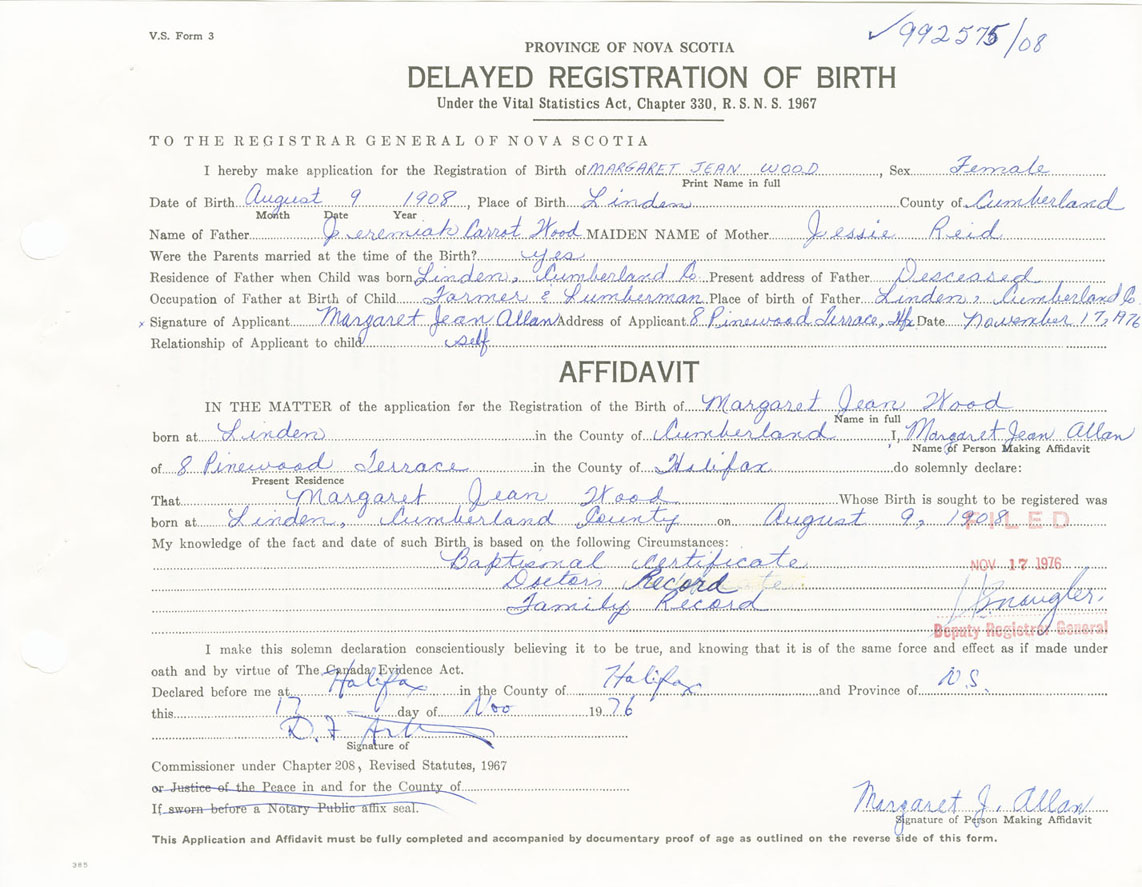 V.S. Form 3
✓992575/08
PROVINCE OF NOVA SCOTIA
DELAYED REGISTRATION OF BIRTH
Under the Vital Statistics Act, Chapter 330, R. S. N. S. 1967
TO THE REGISTRAR GENERAL OF NOVA SCOTIA
I hereby make application for the Registration of Birth of MARGARET JEAN WOOD, Sex Female
Print Name in full
Date of Birth August 9 1908, Place of Birth Linden County of Cumberland
Month Date Year
Name of Father Jeremiah Carrot Wood MAIDEN NAME of Mother Jessie Reid
Were the Parents married at the time of the Birth? yes
Residence of Father when Child was born Linden, Cumberland Co. Present address of Father Desceased
Occupation of Father at Birth of Child Farmer & Lumberman Place of birth of Father Linden, Cumberland Co.
x Signature of Applicant Margaret Jean Allan Address of Applicant 8 Pinewood Terrace, Hfx Date November 17, 1976
Relationship of Applicant to child self
AFFIDAVIT
IN THE MATTER of the application for the Registration of the Birth of Margaret Jean Wood
Name in full
born at Linden in the County of Cumberland I, Margaret Jean Allan
Name of Person Making Affidavit
of 8 Pinewood Terrace in the County of Halifax do solemnly declare:
Present Residence
That Margaret Jean Wood Whose Birth is sought to be registered was
born at Linden, Cumberland County on August 9, 1908
FILED
My knowledge of the fact and date of such Birth is based on the following Circumstances:
Baptismal Certificate
NOV 17 1976
Doctors Record
Family Record
Deputy Registrar General
I make this solemn declaration conscientiously believing it to be true, and knowing that it is of the same force and effect as if made under
oath and by virtue of The Canada Evidence Act.
Declared before me at Halifax in the County of Halifax and Province of N.S.
this 17 day of Nov 1976
D. F.
Signature of
Commissioner under Chapter 208, Revised Statutes, 1967
or Justice of the Peace in and for the County of
If sworn before a Notary Public affix seal.
Margaret J. Allan
Signature of Person Making Affidavit
This Application and Affidavit must be fully completed and accompanied by documentary proof of age as outlined on the reverse side of this form.
385